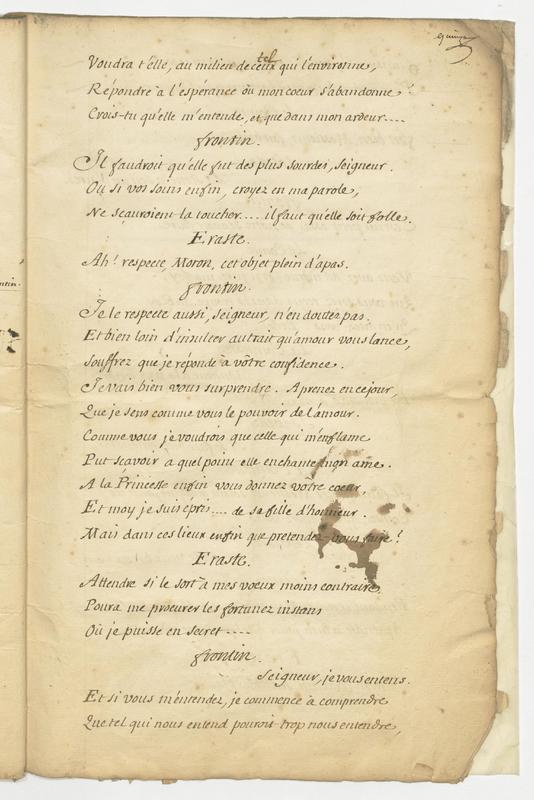 quinze
tel
Voudra t'elle, au milieu de ceux qui l'environne,
Répondre à l'espérance où mon coeur s'abandonne ?
Crois-tu qu'elle m'entende, et que dans mon ardeur....
frontin.
Il faudroit qu'elle fut des plus sourdes, Seigneur.
Ou si vos soins enfin, croyez en ma parole,
Ne scauroient la toucher.... il faut qu'elle soit folle.
Eraste.
Ah! respecte, Moron, cet objet plein d'apas.
frontin.
Je le respecte aussi, Seigneur, n'en doutez pas.
Et bien loin d'insulter au trait qu'amour vous lance,
Souffrez que je réponde à vôtre confidence.
Je vais bien vous surprendre. Aprenez en ce jour,
Que je sens comme vous le pouvoir de l'amour.
Comme vous je voudrois que celle qui m'enflame
Put scavoir à quel point elle enchante mon ame.
A la Princesse enfin vous donnez vôtre coeur,
Et moy je suis épris.... de sa fille d'honneur.
Mais dans ces lieux enfin que pretendez-vous faire?
Eraste.
Attendre si le sort à mes voeux moins contraire,
Poura me procurer les fortunez instans
Où je puisse en secret ----
frontin.
Seigneur, je vous entens.
Et si vous m'entendez, je commence à comprendre
Que tel qui nous entend pouroit trop nous entendre,